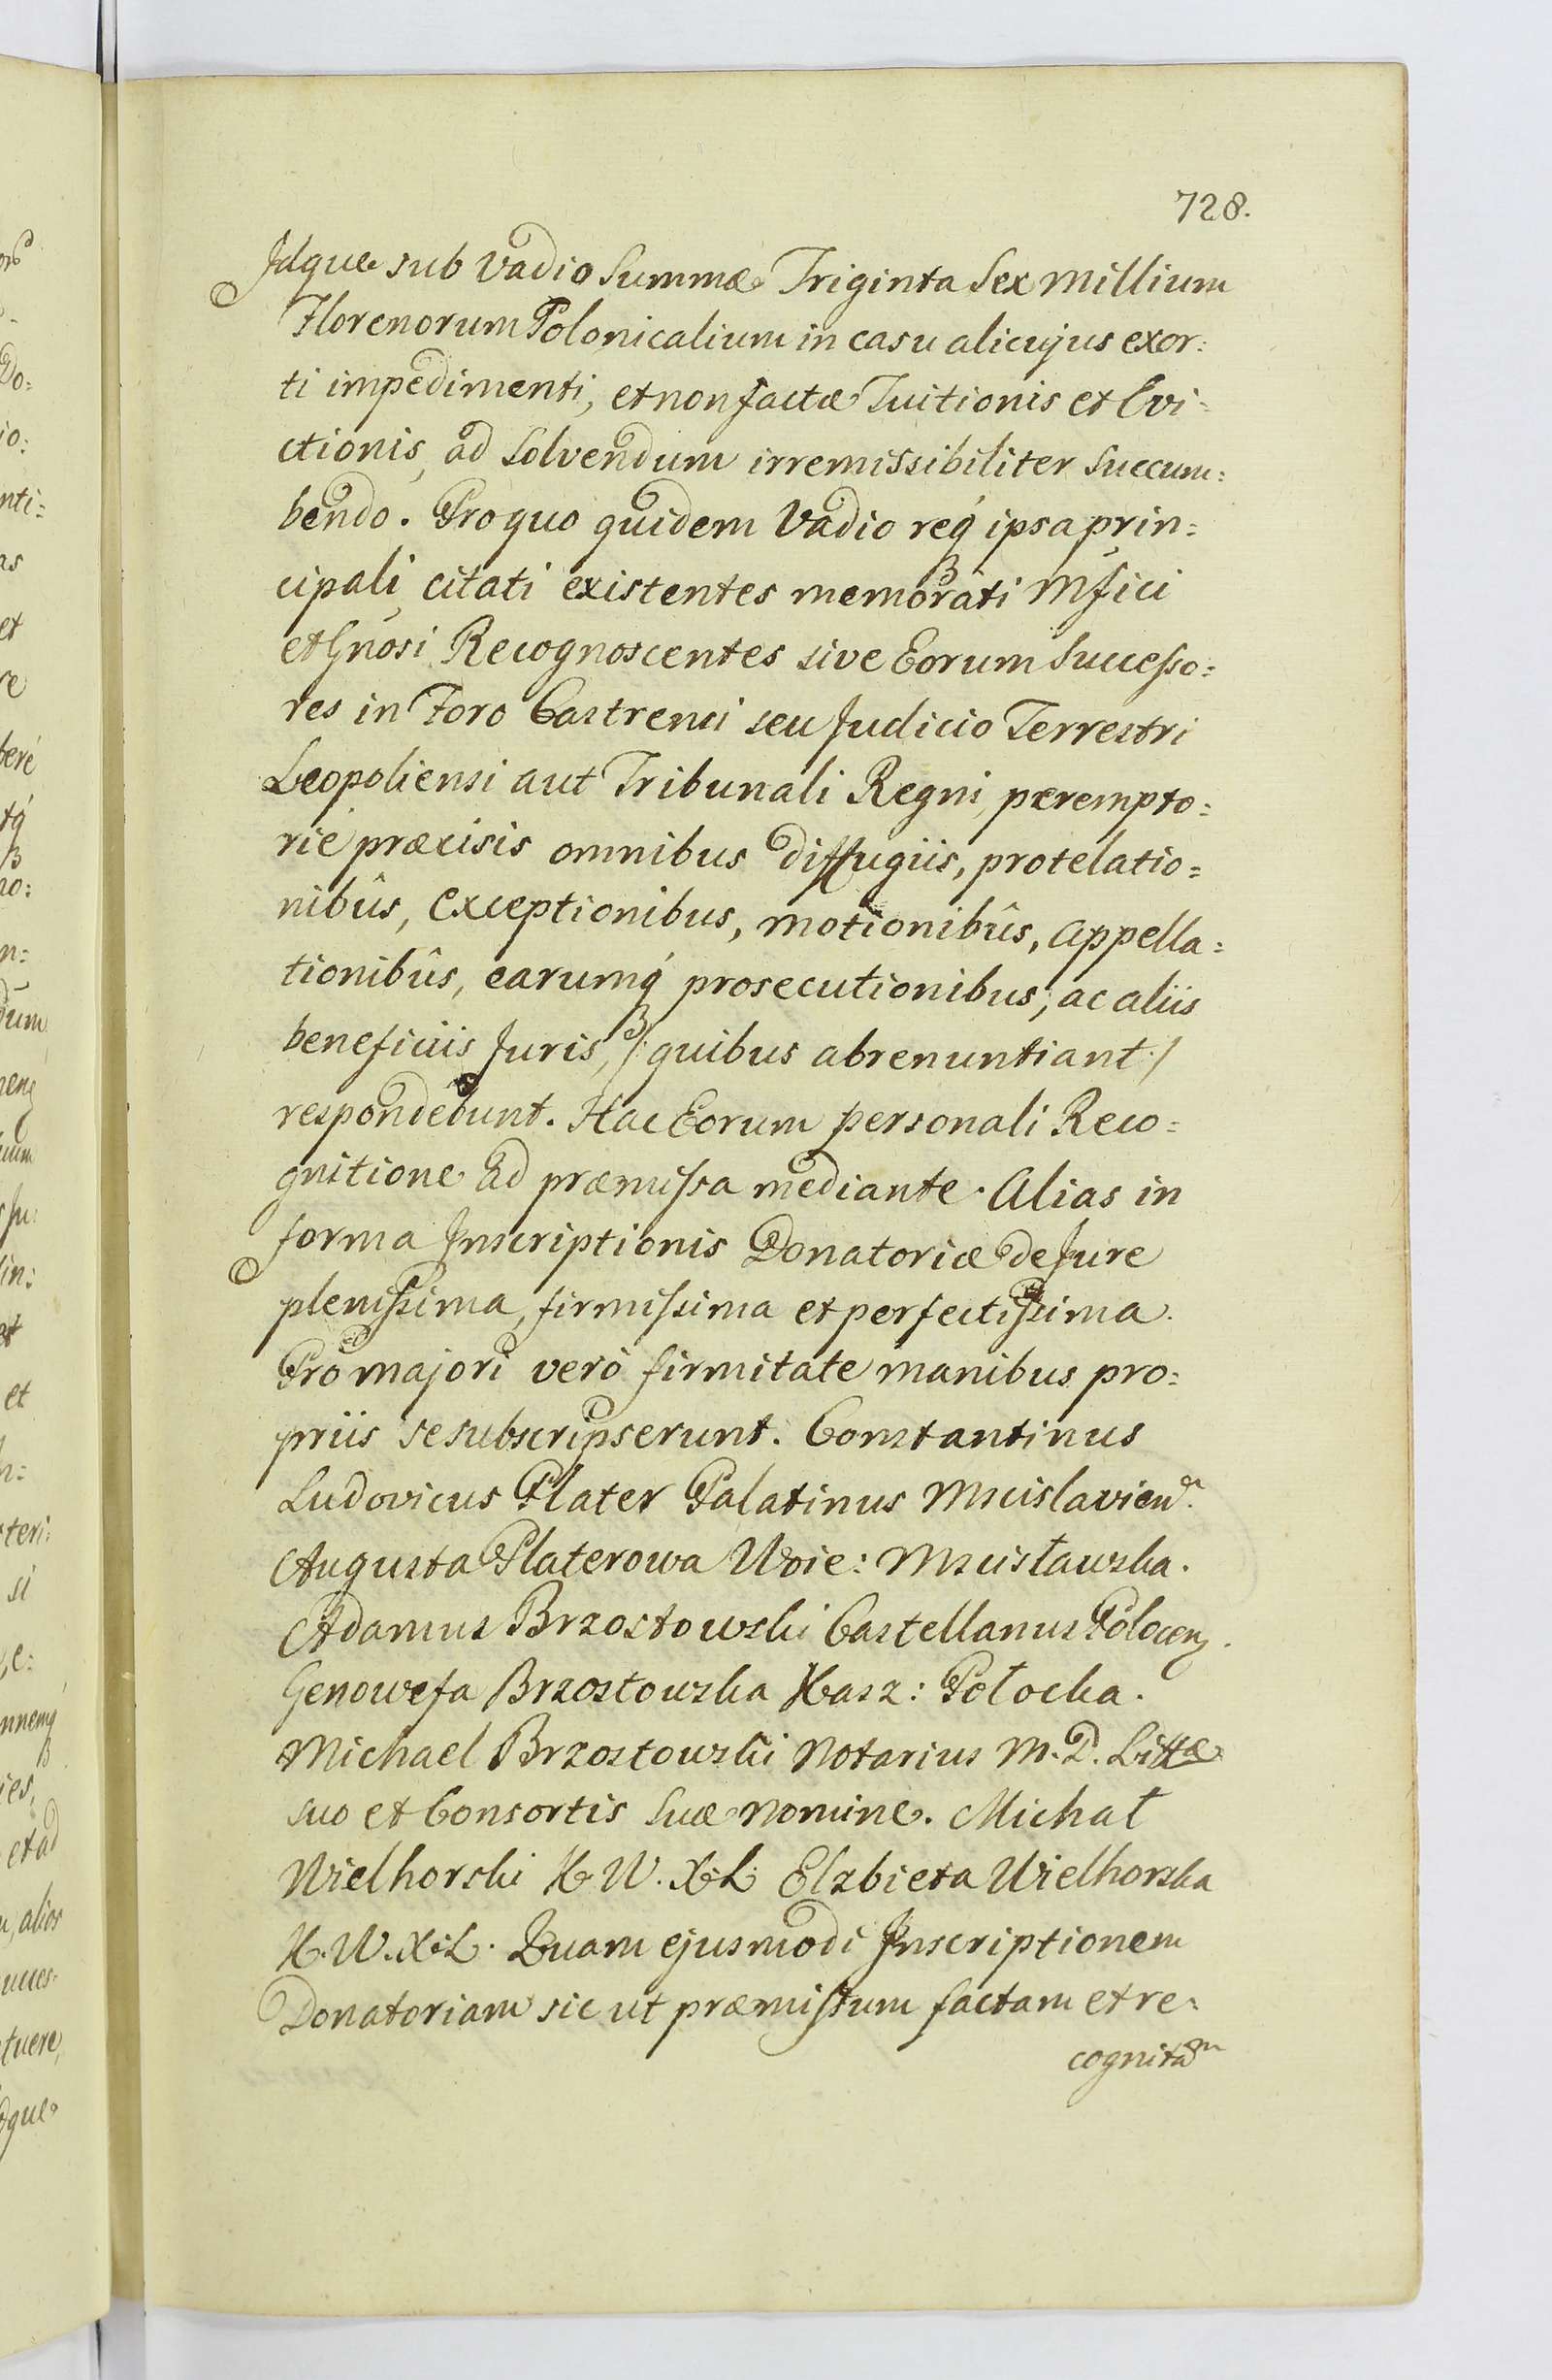 728.
Idque sub vadio Summæ Triginta Sex millium
Florenorum Polonicalium in casu alicujus exor:
ti impedimenti, et non factæ Tuitionis et Evi:
ctionis, ad Solvendum irremissibiliter Succum:
bendo. Pro quo quidem Vadio reqʒ́ ipsa prin:
cipali, citati existentes memorati Mfici
et Gnosi Recognoscentes sive Eorum Successo:
res in Foro Castrensi seu Judicio Terrestri
Leopoliensi aut Tribunali Regni, perempto:
rie præcisis omnibus diffugiis, protelatio:
nibûs, exceptionibus, motionibûs, appella:
tionibûs, earumq́ prosecutionibus, ac aliis
beneficiis Juris, /: quibus abrenuntiant :/
respondebunt. Hac Eorum personali Reco:
gnitione ad præmissa mediante. Alias in
forma Inscriptionis Donatoriæ de Jure
plenissima, firmissima et perfectissima.
Pro majori verò firmitate manibus pro:
priis se subscripserunt. Constantinus
Ludovicus Plater Palatinus Mscislavien.
Augusta Platerowa Woie: Mscisławska.
Adamus Brzostowski Castellanus Polocen.
Genowefa Brzostowska Kasz: Połocka.
Michael Brzostowski Notarius M. D. Littæ
suo et Consortis Suæ nomine. Michał
Wielhorski K. W. X. L. Elzbieta Wielhorska
K. W. X. L. Quam ejusmodi Inscriptionem
Donatoriam sic ut præmissum factam et re:
cognitam